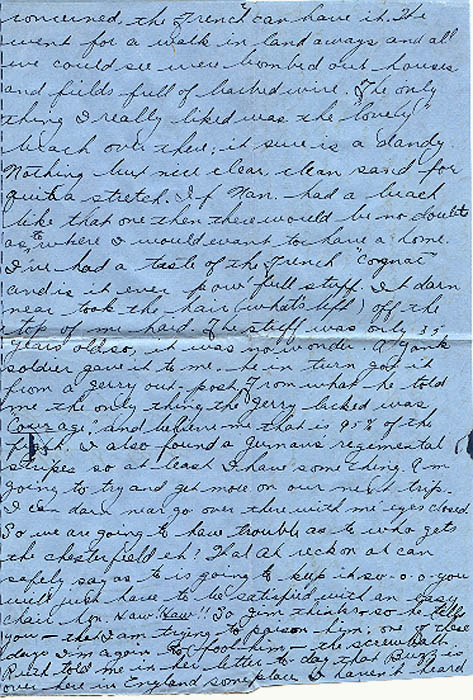 concerned, the French can have it. We
went for a walk in land aways and all
we could see were bombed out houses
and fields full of barbed wire. The only
thing I really liked was the lovely
beach over there; it sure is a dandy.
Nothing but nice clear, clean sand for
quite a stretch. If Van. had a beach
like that one then there would be no doubt
as to where I would want to have a home.
I've had a taste of the French "Cognac"
and is it ever pow'full stuff. It darn
near took the hair (what's left) off the
top of me haid. The stuff was only 35
years old so, it was no wonder. A Yank
soldier gave it to me. he in turn got it
from a Jerry out-post. From what he told
me the only thing the Jerry lacked was
"Courage" and believe me that is 95% of the
fight. I also found a German's regimental
stripes so at least I have something. I'm
going to try and get more on our next trip.
I can darn near go over there with me eyes closed.
So we are going to have trouble as to who gets
the chesterfield eh! Wal Ah reckon ah can
safely say as to is going to keep it. sw-o-o-you
will just have to be satisfid with an easy
chair hon. Haw! Haw!! So Jim thinks - so he tells
you - the I am trying to poison him; one of these
days I'm again to (fool him - the screwball.
Ruth told me in her letter to-day that Buzz is
over here in England some place I haven't heard